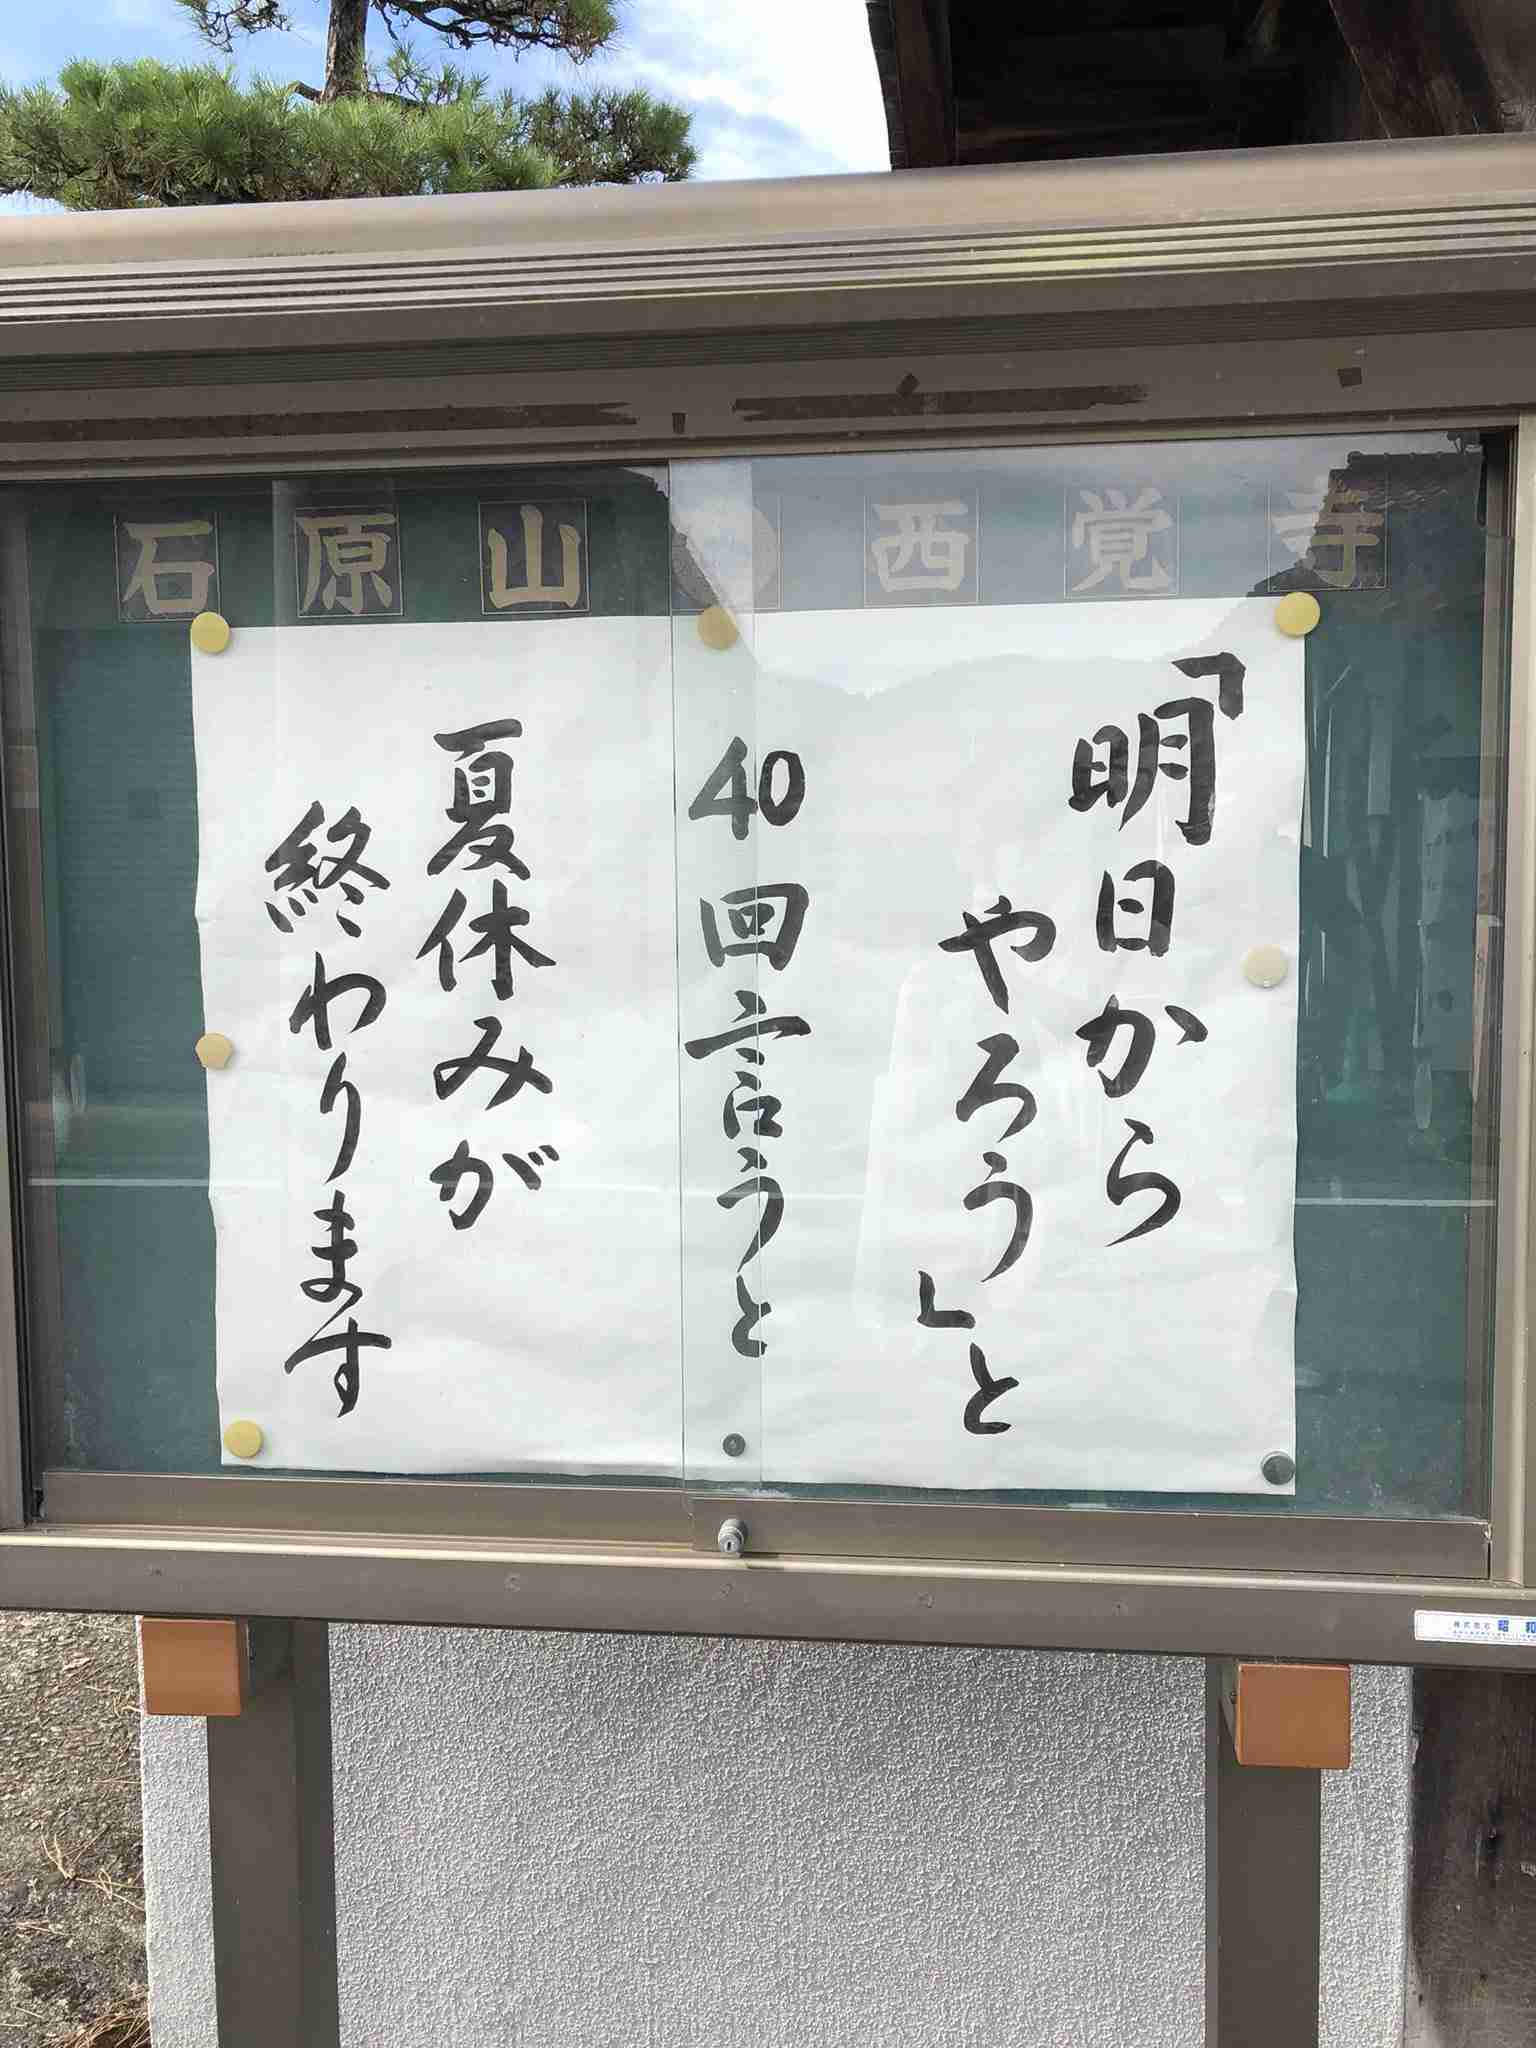 石原山 西覚寺
「明日から
やろう」と
40回言うと
夏休みが
終わります
株式会社